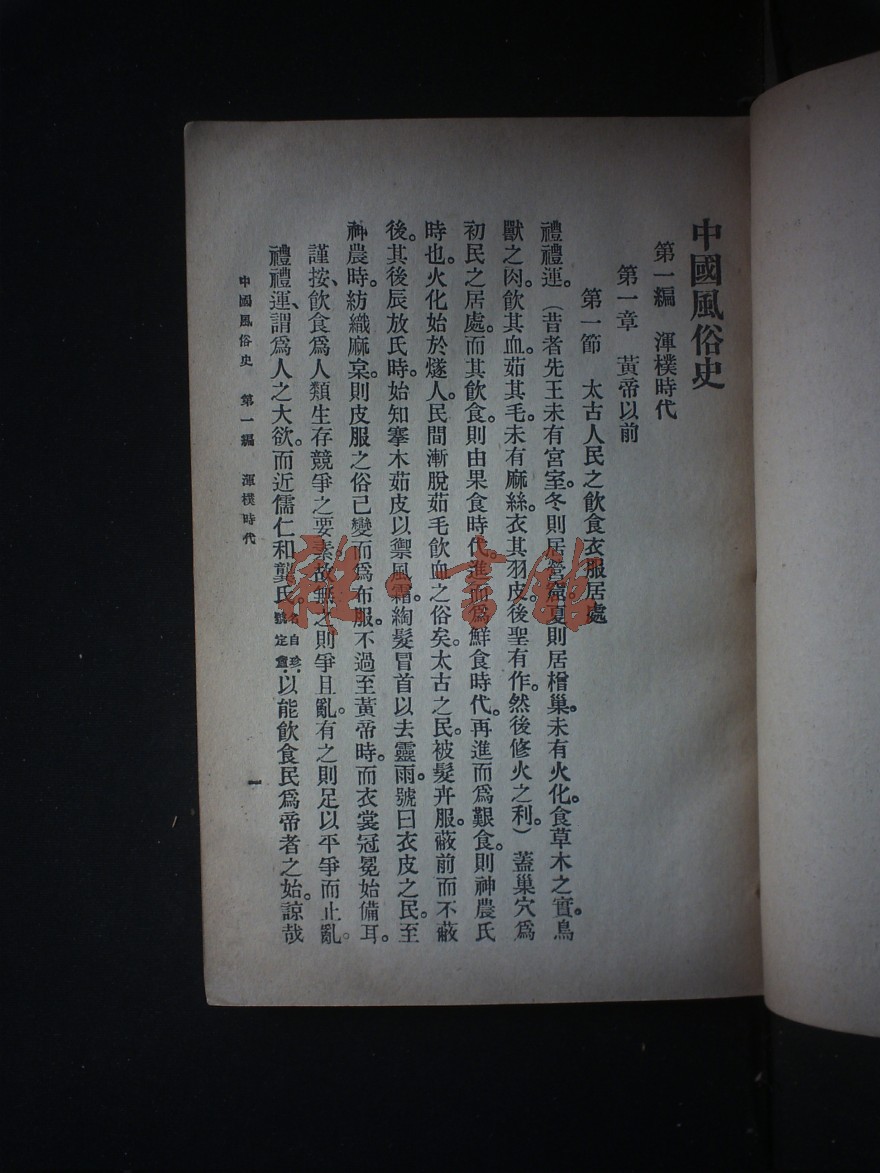 中國風俗史
第一編　渾樸時代
第一章　黃帝以前
第一節　太古人民之飲食衣服居處
禮禮運。（昔者先王未有宮室。冬則居營窟。夏則居橧巢。未有火化。食草木之實。鳥
獸之肉。飲其血。茹其毛。未有麻絲。衣其羽皮。後聖有作。然後修火之利。）蓋巢穴爲
初民之居處。而其飲食。則由果食時代。進而爲鮮食時代。再進而爲艱食。則神農氏
時也。火化始於燧人。民間漸脫茹毛飲血之俗矣。太古之民。被髮卉服。蔽前而不蔽
後。其後辰放氏時。始知搴木茹皮以禦風霜。綯髮冒首以去靈雨。號曰衣皮之民。至
神農時。紡織麻枲。則皮服之俗已變而爲布服。不過至黃帝時。而衣裳冠冕始備耳。
謹按、飲食爲人類生存競爭之要素。故無之則爭且亂。有之則足以平爭而止亂。
禮禮運、謂爲人之大欲。而近儒仁和龔氏。名自珍.號定盦.以能飲食民爲帝者之始。諒哉
中國風俗史　第一編　渾樸時代
一
雜·書館